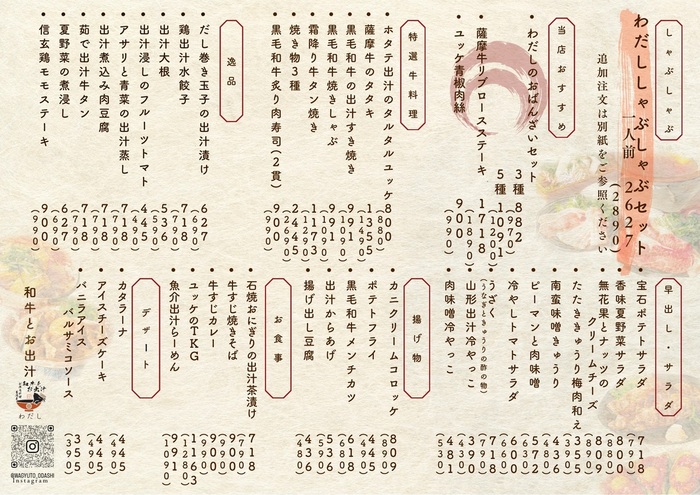 しゃぶしゃぶ
わだししゃぶしゃぶセット
一人前 2627
(2890)
追加注文は別紙をご参照ください
当店おすすめ
・わだしのおばんざいセット
3種 882
5種 1091
(1200)
・薩摩牛リブロースステーキ 1718
(1890)
・ユッケ青椒肉絲 900
(990)
特選牛料理
・ホタテ出汁のタルタルユッケ
・薩摩牛のタタキ 1355
(1490)
・黒毛和牛の出汁すき焼き 991
(1090)
・黒毛和牛焼きしゃぶ
・霜降り牛タン焼き 1173
(1290)
・焼き物3種 2445
(2690)
・黒毛和牛炙り肉寿司(2貫) 900
(990)
逸品
・だし巻き玉子の出汁漬け 627
(690)
・鶏出汁水餃子 718
(790)
・出汁大根 536
(590)
・出汁浸しのフルーツトマト 445
(490)
・アサリと青菜の出汁蒸し 718
(790)
・出汁煮込み肉豆腐 718
(790)
・茹で出汁牛タン 718
(790)
・夏野菜の煮浸し 627
(690)
・信玄鶏モモステーキ 900
(990)
早出し・サラダ
・宝石ポテトサラダ 718
(790)
・香味夏野菜サラダ
・無花果とナッツの
クリームチーズ
・たたききゅうり梅肉和え
・南蛮味噌きゅうり
・ピーマンと肉味噌
・冷やしトマトサラダ
・うざく
(うなぎときゅうりの酢の物)
・山形出汁冷やっこ
・肉味噌冷やっこ
揚げ物
・カニクリームコロッケ 809
(890)
・ポテトフライ 445
(490)
・黒毛和牛メンチカツ
・出汁からあげ
・揚げ出し豆腐 436
(480)
お食事
・石焼おにぎりの出汁茶漬け 718
(790)
・牛すじ焼きそば 900
(990)
・牛すじカレー 900
(990)
・ユッケのTKG
・魚介出汁らーめん 991
(1090)
デザート
・カタラーナ 445
(490)
・アイスチーズケーキ 445
(490)
・バニラアイス
バルサミコソース 355
(390)
和牛とお出汁
わだし
@WAGYUTO_ODASHI
Instagram